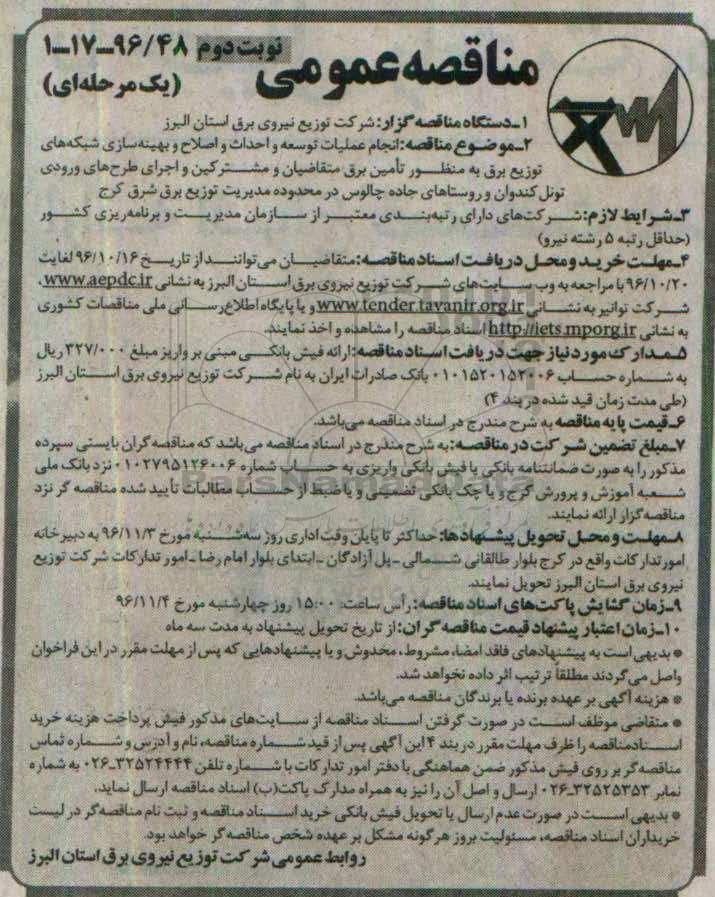 مناقصه عمومی نوبت دوم ۹۶/۴۸-۱۷-۱
(یک مرحله‌ای)
۱ـ دستگاه مناقصه گزار: شرکت توزیع نیروی برق استان البرز
۲ـ موضوع مناقصه: انجام عملیات توسعه و احداث و اصلاح و بهینه‌سازی شبکه‌های
توزیع برق به منظور تأمین برق متقاضیان و مشترکین و اجرای طرح‌های ورودی
تونل کندوان و روستاهای جاده چالوس در محدوده مدیریت توزیع برق شرق کرج
۳ـ شرایط لازم: شرکت‌های دارای رتبه‌بندی معتبر از سازمان مدیریت و برنامه‌ریزی کشور
(حداقل رتبه ۵ رشته نیرو)
۴ـ مهلت خرید و محل دریافت اسناد مناقصه: متقاضیان می‌توانند از تاریخ ۹۶/۱۰/۱۶ لغایت
۹۶/۱۰/۲۰ با مراجعه به وب سایت‌های شرکت توزیع نیروی برق استان البرز به نشانی www.aepdc.ir،
شرکت توانیر به نشانی www.tender.tavanir.org.ir و یا پایگاه اطلاع‌رسانی ملی مناقصات کشوری
به نشانی http://iets.mporg.ir اسناد مناقصه را مشاهده و اخذ نمایند.
۵ـ مدارک مورد نیاز جهت دریافت اسناد مناقصه: ارائه فیش بانکی مبنی بر واریز مبلغ ۳۲۷/۰۰۰ ریال
به شماره حساب ۰۱۰۱۵۲۰۱۵۲۰۰۶ بانک صادرات ایران به نام شرکت توزیع نیروی برق استان البرز
(طی مدت زمان قید شده در بند ۴)
۶ـ قیمت پایه مناقصه به شرح مندرج در اسناد مناقصه می‌باشد.
۷ـ مبلغ تضمین شرکت در مناقصه: به شرح مندرج در اسناد مناقصه می‌باشد که مناقصه‌گران بایستی سپرده
مذکور را به صورت ضمانتنامه بانکی یا فیش بانکی واریزی به حساب شماره ۰۱۰۲۷۹۵۱۲۶۰۰۶ نزد بانک ملی
شعبه آموزش و پرورش کرج و یا چک بانکی تضمینی و یا ضبط از حساب مطالبات تأیید شده مناقصه گر نزد
مناقصه گزار ارائه نمایند.
۸ـ مهلت و محل تحویل پیشنهادها: حداکثر تا پایان وقت اداری روز سه‌شنبه مورخ ۹۶/۱۱/۳ به دبیرخانه
امور تدارکات واقع در کرج بلوار طالقانی شمالی ـ پل آزادگان ـ ابتدای بلوار امام رضا ـ امور تدارکات شرکت توزیع
نیروی برق استان البرز تحویل نمایند.
۹ـ زمان گشایش پاکت‌های اسناد مناقصه: رأس ساعت: ۱۵:۰۰ روز چهارشنبه مورخ ۹۶/۱۱/۴
۱۰ـ زمان اعتبار پیشنهاد قیمت مناقصه گران: از تاریخ تحویل پیشنهاد به مدت سه ماه
* بدیهی است به پیشنهادهای فاقد امضا، مشروط، مخدوش و یا پیشنهادهایی که پس از مهلت مقرر در این فراخوان
واصل می‌گردند مطلقاً ترتیب اثر داده نخواهد شد.
* هزینه آگهی بر عهده برنده یا برندگان مناقصه می‌باشد.
* متقاضی موظف است در صورت گرفتن اسناد مناقصه از سایت‌های مذکور فیش پرداخت هزینه خرید
اسناد مناقصه را ظرف مهلت مقرر در بند ۴ این آگهی پس از قید شماره مناقصه، نام و آدرس و شماره تماس
مناقصه‌گر بر روی فیش مذکور ضمن هماهنگی با دفتر امور تدارکات با شماره تلفن ۳۲۵۲۴۴۴۴-۰۲۶ به شماره
نمابر ۳۲۵۲۵۳۵۳-۰۲۶ ارسال و اصل آن را نیز به همراه مدارک پاکت (ب) اسناد مناقصه ارسال نماید.
* بدیهی است در صورت عدم ارسال یا تحویل فیش بانکی خرید اسناد مناقصه و ثبت نام مناقصه‌گر در لیست
خریداران اسناد مناقصه، مسئولیت بروز هرگونه مشکل بر عهده شخص مناقصه‌گر خواهد بود.
روابط عمومی شرکت توزیع نیروی برق استان البرز
ParsNamadData